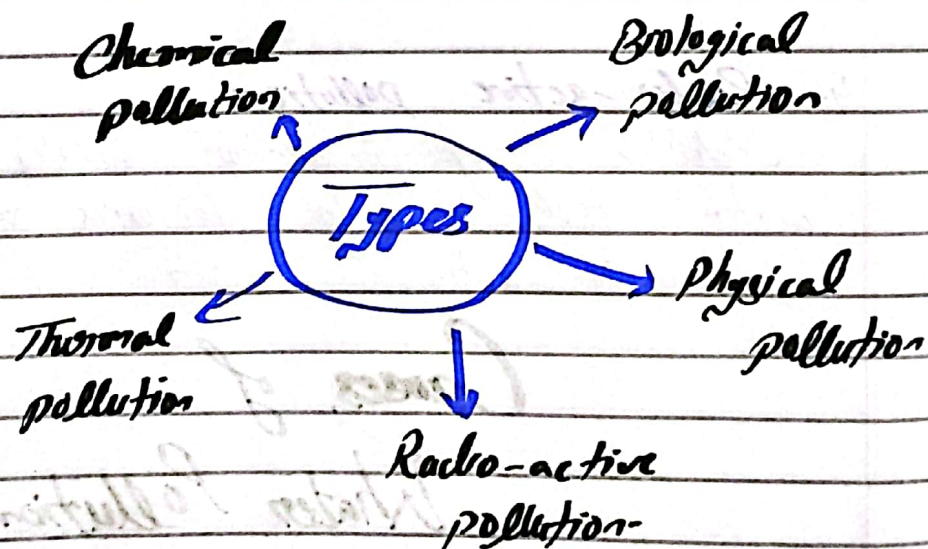 Chemical
pollution
Biological
pollution
Types
Physical
pollution
Thermal
pollution
Radio-active
pollution
Causes of
Water Pollution